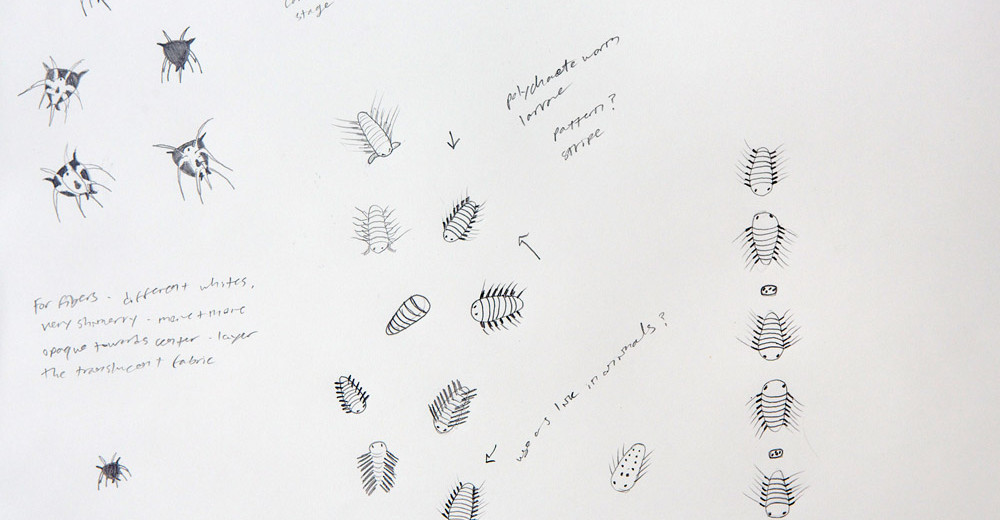 stage
polychaete worm
larvae
pattern?
stripe
For fibers - different whites,
very shimerry - more + more
opaque towards center - layer
the translucent fabric
use as link in animals?